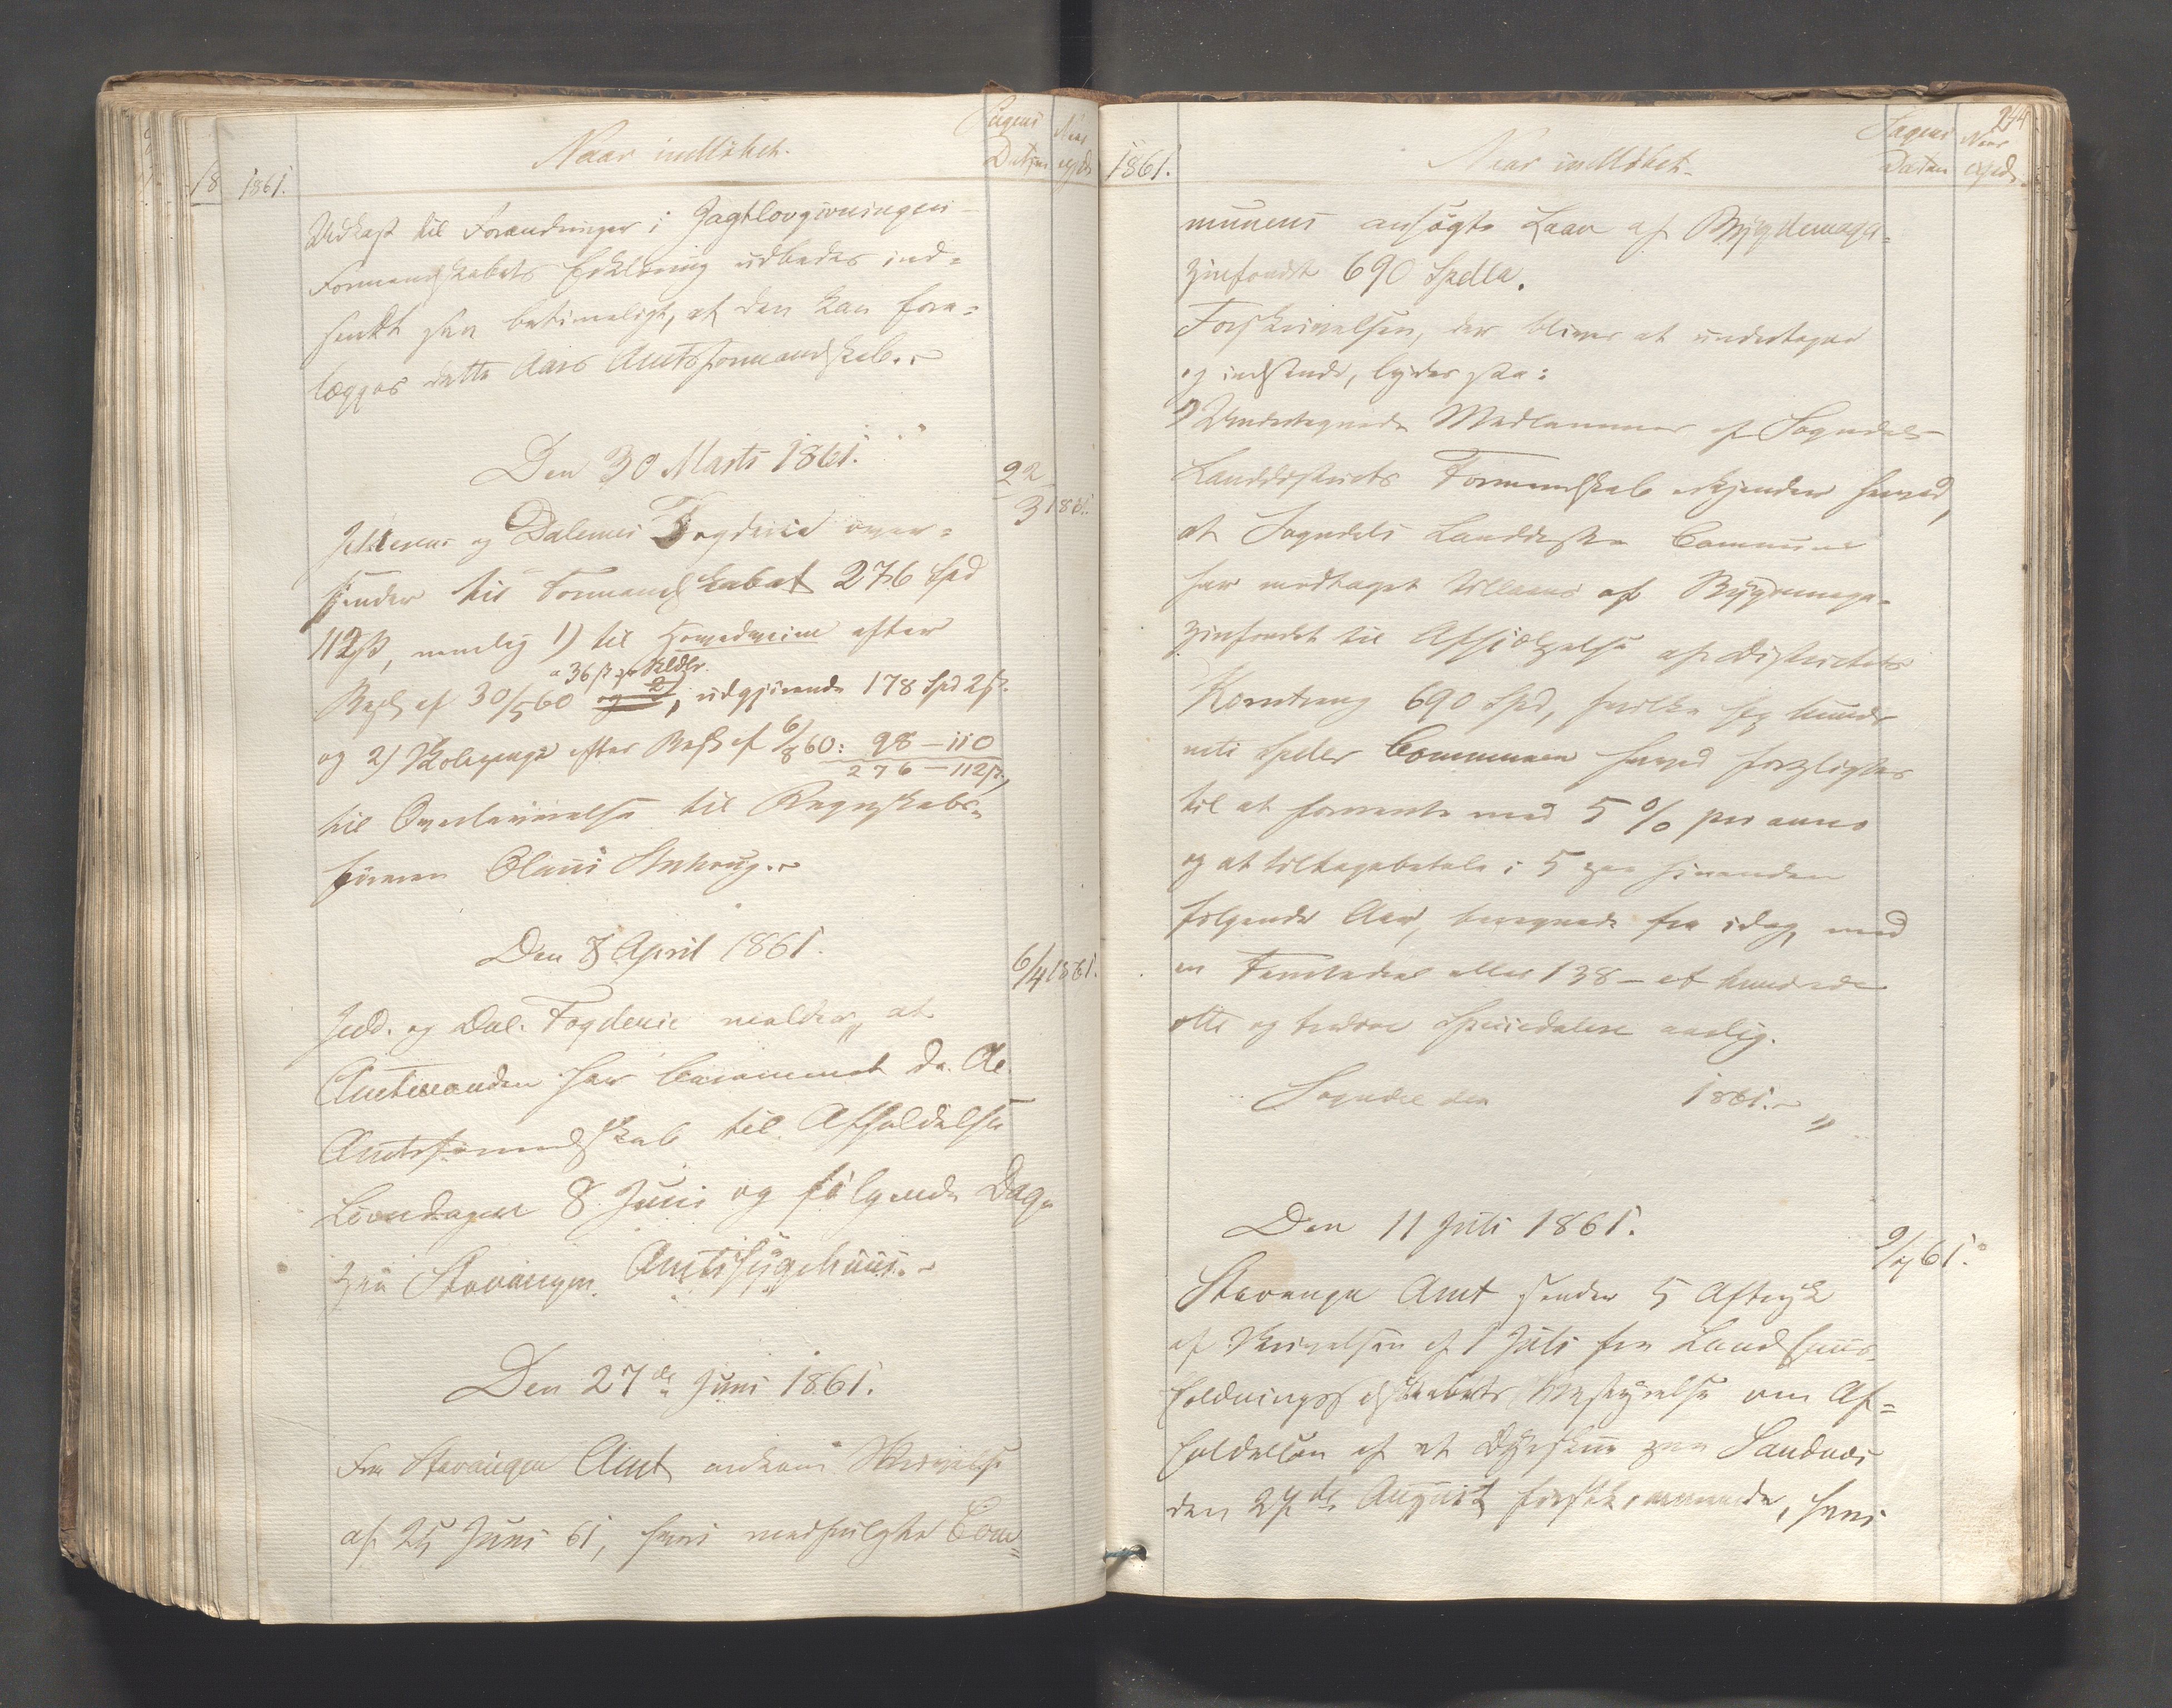 1861.
Naar indløbet.
Sagens
Datum
Naar
exped.
Udkast til Forandringer i Jagtlovgivningen
Formandskabets Erklæring udbedes ind=
sendt saa betimeligt, at den kan fore=
lægges dette Aars Amtsformandskab.
Den 30 Marts 1861.
22
3 1861.
Jædderens og Dalernes Fogderie over=
sender til Formandskabet 276 Spd
112 ß, nemlig 1) til Hovedveien efter
a 36 ß pr Rdlr.
Resl. af 30/5 60 og 2), udgjørende 178 Spd 2 ß.
og 2) Skolepenge efter Resl. af 6/8 60: 98 – 110
276 – 112 ß,
til Overleverelse til Regnskabs=
føreren Olaus
Den 8 April 1861.
6/4 1861.
Jed. og Dal. Fogderie melder, at
Amtmanden har berammet d. A.
Amtsformandskab til Afholdelse
Løverdagen 8 Juni og følgende Dage
paa Stavanger Amtssygehuus.
Den 27de Juni 1861.
Fra Stavanger Amt ankom Skrivelse
af 25 Juni 61, hvori medfulgte Com=
294
1861.
Naar indløbet.
Sagens
Datum
Naar
exped.
munens ansøgte Laan af Bygdemaga=
zinfondet 690 Spdlr.
Forskrivelsen, der bliver at undertegne
og indsende, lyder saa:
"Undertegnede Medlemmer af Sogndals
Landdistricts Formandskab erkjender herved,
at Sogndals Landdistr. Commune
har modtaget tillaans af Bygdemaga=
zinfondet til Afhjælpelse af Districtets
Korntrang 690 Spd, hvilke sex hundr.
niti Spdlr Communen herved forpligtes
til at forrente med 5 % pro anno
og at tilbagebetale i 5 paa hinanden
følgende Aar, beregnede fra idag, med
en Femtedeel eller 138 – et hundrede
otte og tredive Speciedaler aarlig.
Sogndal den 1861. "
Den 11 Juli 1861.
9/7 61.
Stavanger Amt sender 5 Aftryk
af Skrivelsen af 1 Juli fra Landhuus=
holdningsselskabets Bestyrelse om Af=
holdelsen af et Dyrskue paa Sandnæs
den 27de August førstkommende, hvori